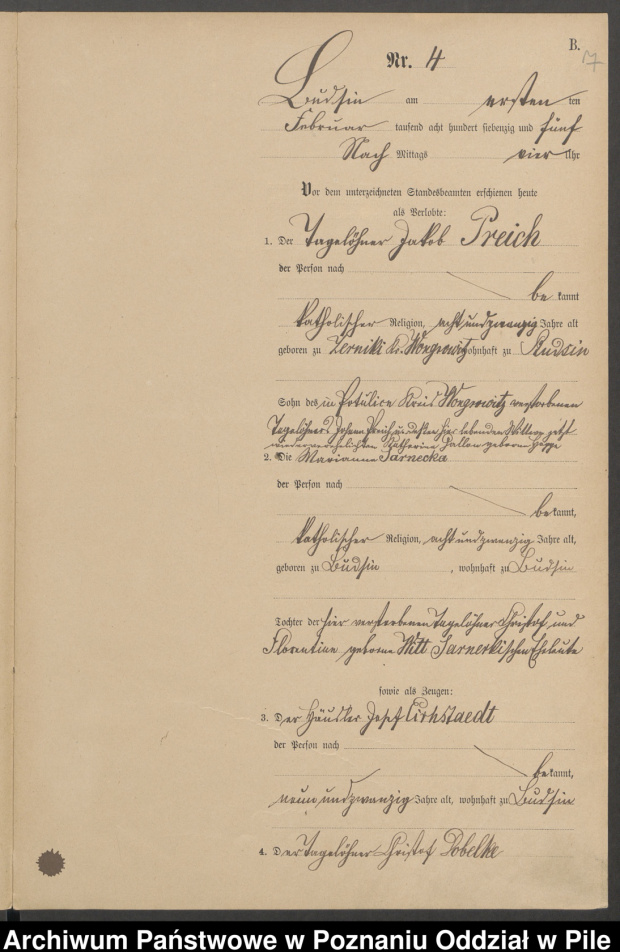 B.
17
Nr. 4
Budsin am ersten ten
Februar tausend acht hundert siebenzig und fünf
Nach Mittags vier Uhr
Vor dem unterzeichneten Standesbeamten erschienen heute
als Verlobte:
1. Der Tagelöhner Jakob Preich
der Person nach
be kannt
katholischer Religion, achtundzwanzig Jahre alt
geboren zu Zerniki Kr. Wongrowitz wohnhaft zu Budsin
Sohn des in Potulice Kreis Wongrowitz verstorbenen
Tagelöhners Johann Preich und dessen hier lebenden Wittwe jetzt
wiederverehelichten Katharina geborene
2. Die Marianna Sarnecka
der Person nach
bekannt,
katholischer Religion, achtundzwanzig Jahre alt,
geboren zu Budsin, wohnhaft zu Budsin
Tochter der hier verstorbenen Tagelöhner Christof und
Florentine geborne Witt Sarneckischen Eheleute
sowie als Zeugen:
3. Der Häusler Josef Cirhstaedt
der Person nach
bekannt,
neunundzwanzig Jahre alt, wohnhaft zu Budsin
4. Der Tagelöhner Christof Dobelke
Archiwum Państwowe w Poznaniu Oddział w Pile